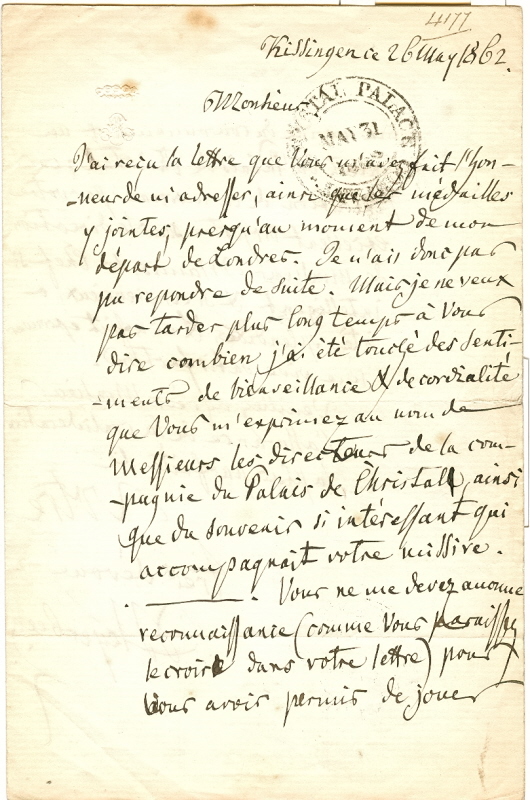 4177
Kissingen ce 26 May 1862.
Monsieur
CRYSTAL PALACE
MAY 31
J'ai reçu la lettre que Vous m'avez fait l'hon-
neur de m'adresser, ainsi que les médailles
y jointes, presqu'au moment de mon
départ de Londres. Je n'ais donc pas
pu repondre de suite. Mais je ne veux
pas tarder plus long temps à Vous
dire combien j'ai été touché des senti-
-ments de bienveillance & de cordialité
que Vous m'exprimez au nom de
Messieurs les directeurs de la com-
-pagnie du Palais de Christall, ainsi
que du souvenir si intéressant qui
accompagnait votre missive.
Vous ne me devez aucune
reconnaissance (comme Vous paraissez
le croire dans votre lettre) pour
Vous avoir permis de jouer